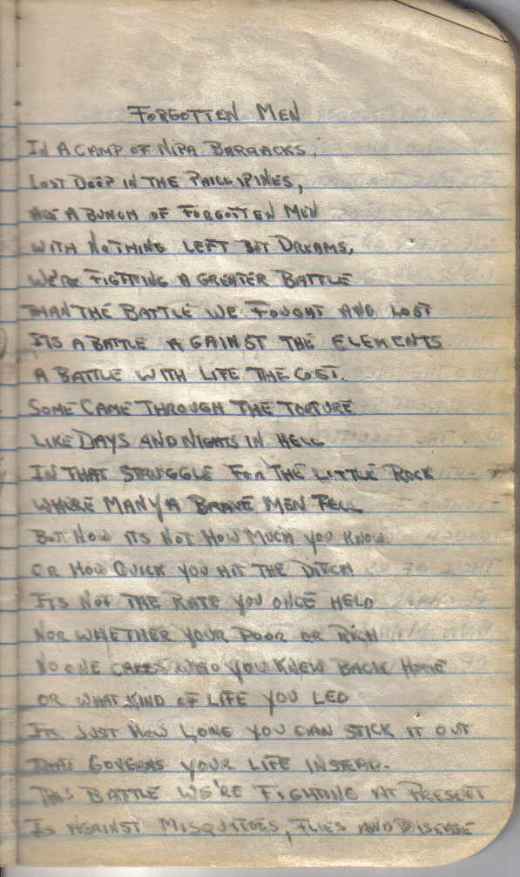 FORGOTTEN MEN
IN A CAMP OF NIPA BARRACKS,
LOST DEEP IN THE PHILLIPINES,
ARE A BUNCH OF FORGOTTEN MEN
WITH NOTHING LEFT BUT DREAMS,
WE'RE FIGHTING A GREATER BATTLE
THAN THE BATTLE WE FOUGHT AND LOST
ITS A BATTLE AGAINST THE ELEMENTS
A BATTLE WITH LIFE THE COST.
SOME CAME THROUGH THE TORTURE
LIKE DAYS AND NIGHTS IN HELL
IN THAT STRUGGLE FOR THE LITTLE ROCK
WHERE MANY A BRAVE MEN FELL
BUT NOW ITS NOT HOW MUCH YOU KNOW
OR HOW QUICK YOU HIT THE DITCH
ITS NOT THE RATE YOU ONCE HELD
NOR WHETHER YOUR POOR OR RICH
NO ONE CARES WHO YOU KNEW BACK HOME
OR WHAT KIND OF LIFE YOU LED
ITS JUST HOW LONG YOU CAN STICK IT OUT
THAT GOVERNS YOUR LIFE INSTEAD.
THIS BATTLE WE'RE FIGHTING AT PRESENT
IS AGAINST MISQUITOES, FLIES AND DISEASE